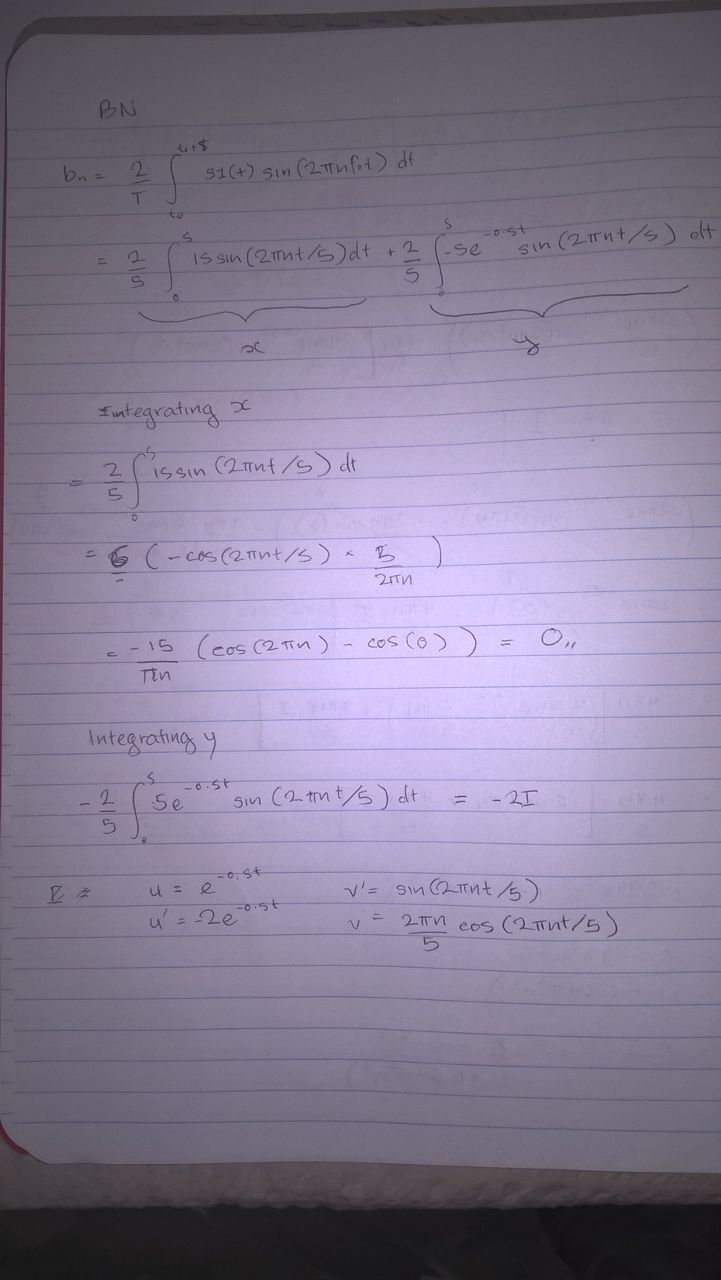 BN
bn = 2/T ∫_{to}^{to+5} s1(t) sin(2πnfot) dt
= 2/5 ∫_0^5 15 sin(2πnt/5)dt + 2/5 ∫_0^5 -5e^{-0.5t} sin(2πnt/5) dt
x y
Integrating x
= 2/5 ∫_0^5 15 sin(2πnt/5) dt
= 6 (-cos(2πnt/5) × 5/2πn)
= -15/πn (cos(2πn) - cos(0)) = 0,,
Integrating y
-2/5 ∫_0^5 5e^{-0.5t} sin(2πnt/5) dt = -2I
u = e^{-0.5t} v' = sin(2πnt/5)
u' = -2e^{-0.5t} v = 2πn/5 cos(2πnt/5)